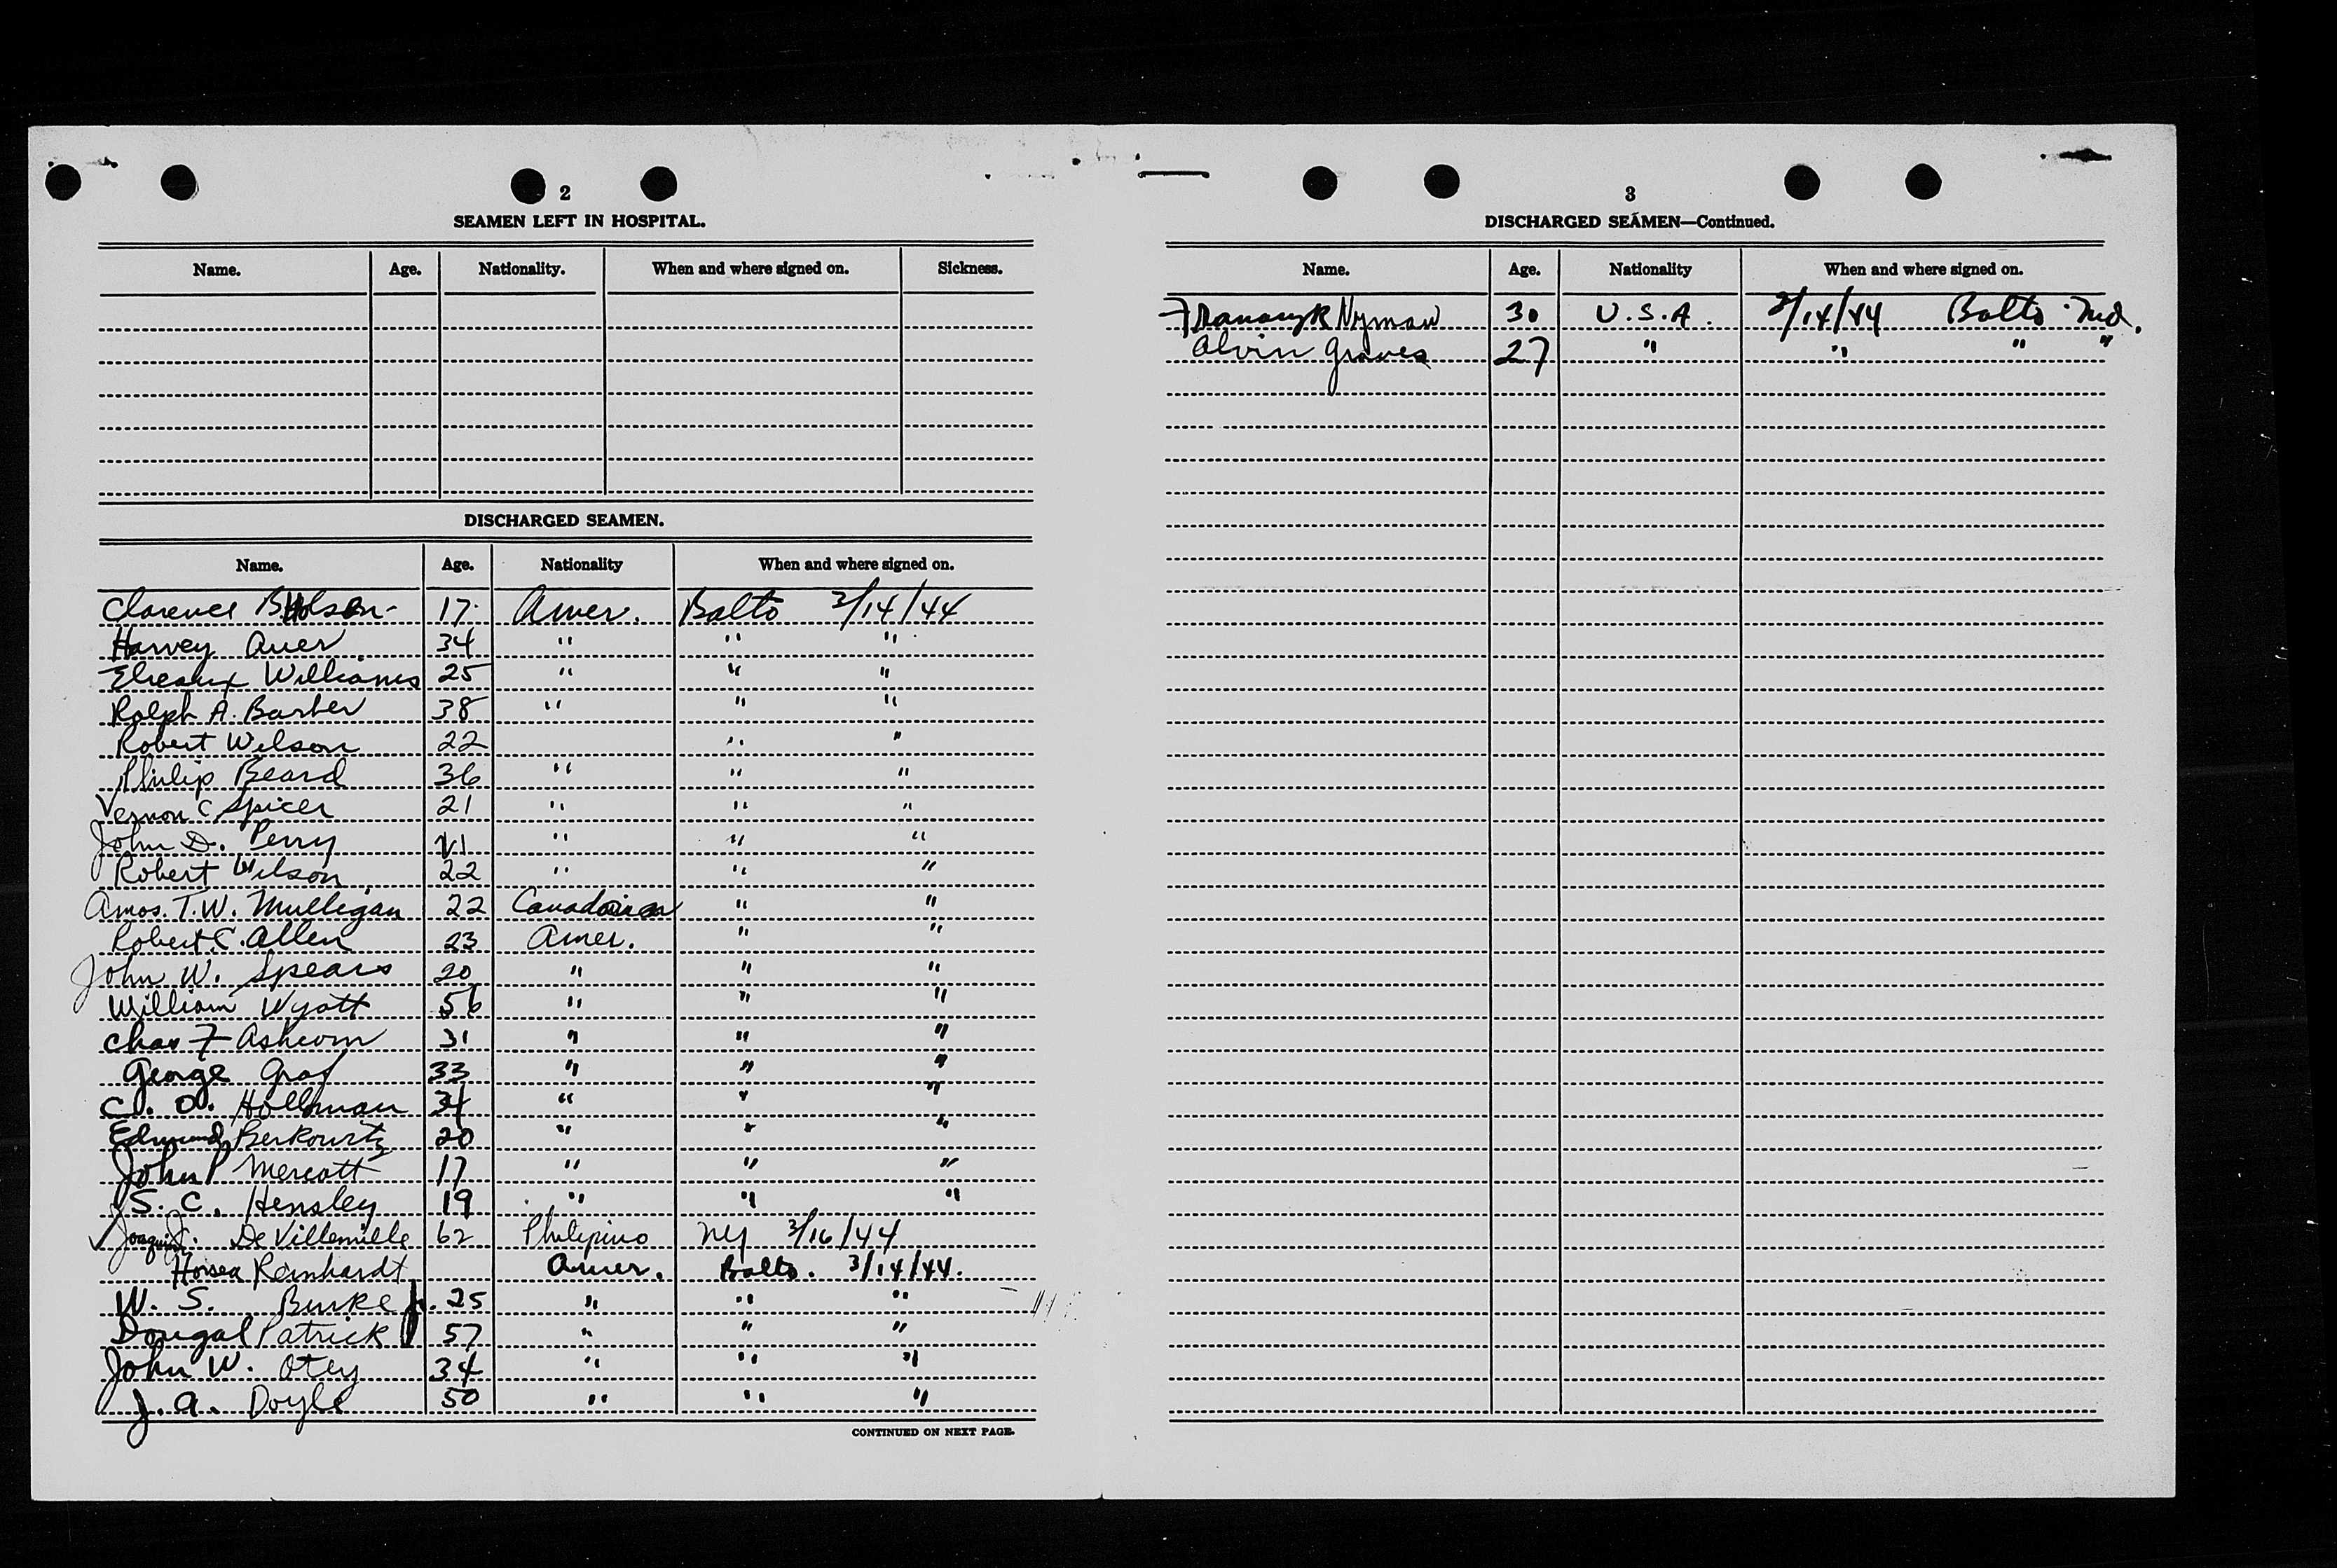 2
SEAMEN LEFT IN HOSPITAL.
Name. Age. Nationality. When and where signed on. Sickness.
DISCHARGED SEAMEN.
Name. Age. Nationality When and where signed on.
Clarence 17 Amer. Balto 3/14/44
Harvey Auer 34 " " "
Williams 25 " " "
Ralph A. Barber 38 " " "
Robert Wilson 22 " "
Philip Beard 36 " " "
Vernon C Spicer 21 " " "
John D. Perry 21 " " "
Robert Wilson 22 " " "
Amos. T. W. Mulligan 22 Canadian " "
Robert C. Allen 23 Amer. " "
John W. Spears 20 " " "
William Wyatt 56 " " "
Chas F 31 " " "
George Graf 33 " " "
C. O. Hollman 34 " " "
Edmund Berkowitz 20 " " "
John P 17 " " "
S. C. Hensley 19 " " "
Joaquin J. 62 Philipino NY 3/16/44
Hosea Reinhardt Amer. Balto. 3/14/44.
W. S. Burke Jr. 25 " " "
Dougal Patrick 57 " " "
John W. Otey 34 " " "
J. A. Doyle 50 " " "
CONTINUED ON NEXT PAGE.
3
DISCHARGED SEAMEN—Continued.
Name. Age. Nationality When and where signed on.
Nyman 30 U.S.A. 3/14/44 Balto Md.
Alvin Graves 27 " " " "